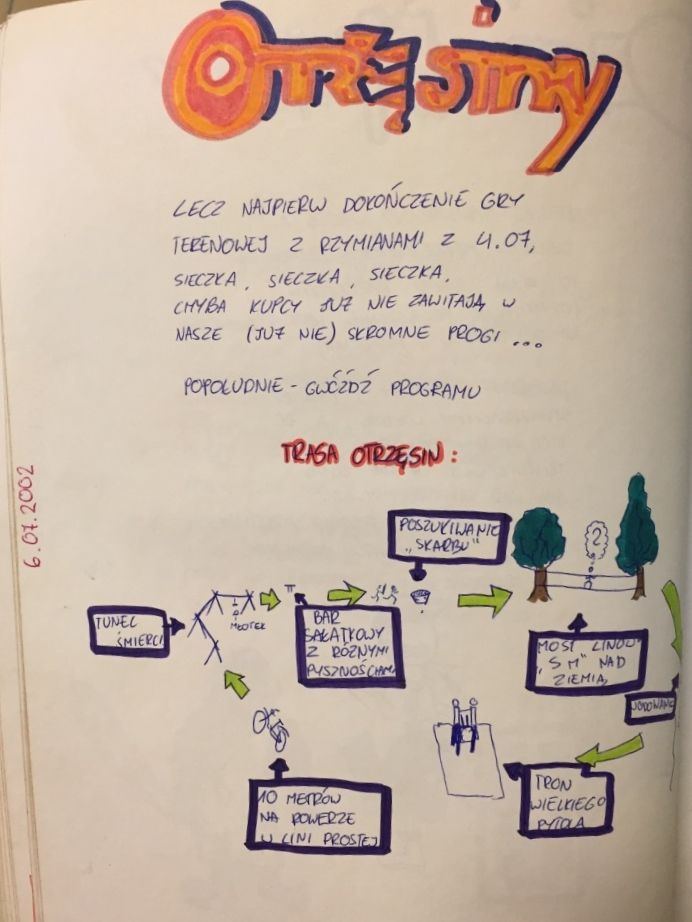 Otrzęsiny
LECZ NAJPIERW DOKOŃCZENIE GRY
TERENOWEJ Z RZYMIANAMI Z 4.07,
SIECZKA, SIECZKA, SIECZKA.
CHYBA KUPCY JUŻ NIE ZAWITAJĄ W
NASZE (JUŻ NIE) SKROMNE PROGI ...
POPOŁUDNIE - GWÓŹDŹ PROGRAMU
TRASA OTRZĘSIN:
6.07.2002
POSZUKIWANIE
"SKARBU"
?
TUNEL
ŚMIERCI
MŁOTEK
BAR
SAŁATKOWY
Z RÓŻNYMI
PYSZNOŚCIAMI
MOST LINOWY
"5 M" NAD
ZIEMIĄ
WODOWANIE
10 METRÓW
NA ROWERZE
W LINI PROSTEJ
TRON
WIELKIEGO